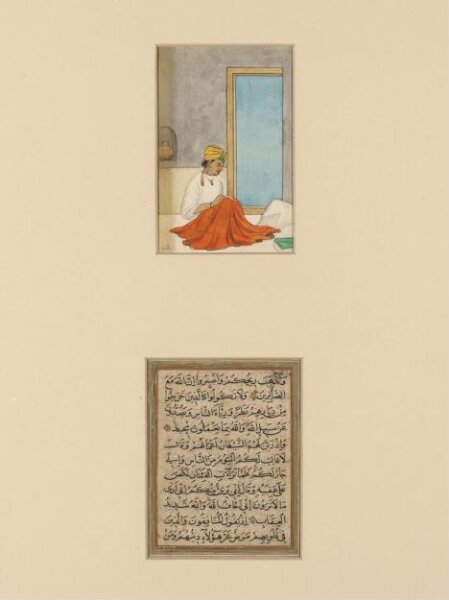 وَتَذْهَبَ رِيحُكُمْ وَاصْبِرُوا إِنَّ اللَّهَ مَعَ
الصَّابِرِينَ وَلَا تَكُونُوا كَالَّذِينَ خَرَجُوا
مِنْ دِيَارِهِمْ بَطَرًا وَرِئَاءَ النَّاسِ وَيَصُدُّونَ
عَنْ سَبِيلِ اللَّهِ وَاللَّهُ بِمَا يَعْمَلُونَ مُحِيطٌ
وَإِذْ زَيَّنَ لَهُمُ الشَّيْطَانُ أَعْمَالَهُمْ وَقَالَ
لَا غَالِبَ لَكُمُ الْيَوْمَ مِنَ النَّاسِ وَإِنِّي
جَارٌ لَكُمْ فَلَمَّا تَرَاءَتِ الْفِئَتَانِ نَكَصَ
عَلَى عَقِبَيْهِ وَقَالَ إِنِّي بَرِيءٌ مِنْكُمْ إِنِّي أَرَى
مَا لَا تَرَوْنَ إِنِّي أَخَافُ اللَّهَ وَاللَّهُ شَدِيدُ
الْعِقَابِ إِذْ يَقُولُ الْمُنَافِقُونَ وَالَّذِينَ
فِي قُلُوبِهِمْ مَرَضٌ غَرَّ هَؤُلَاءِ دِينُهُمْ وَمَنْ